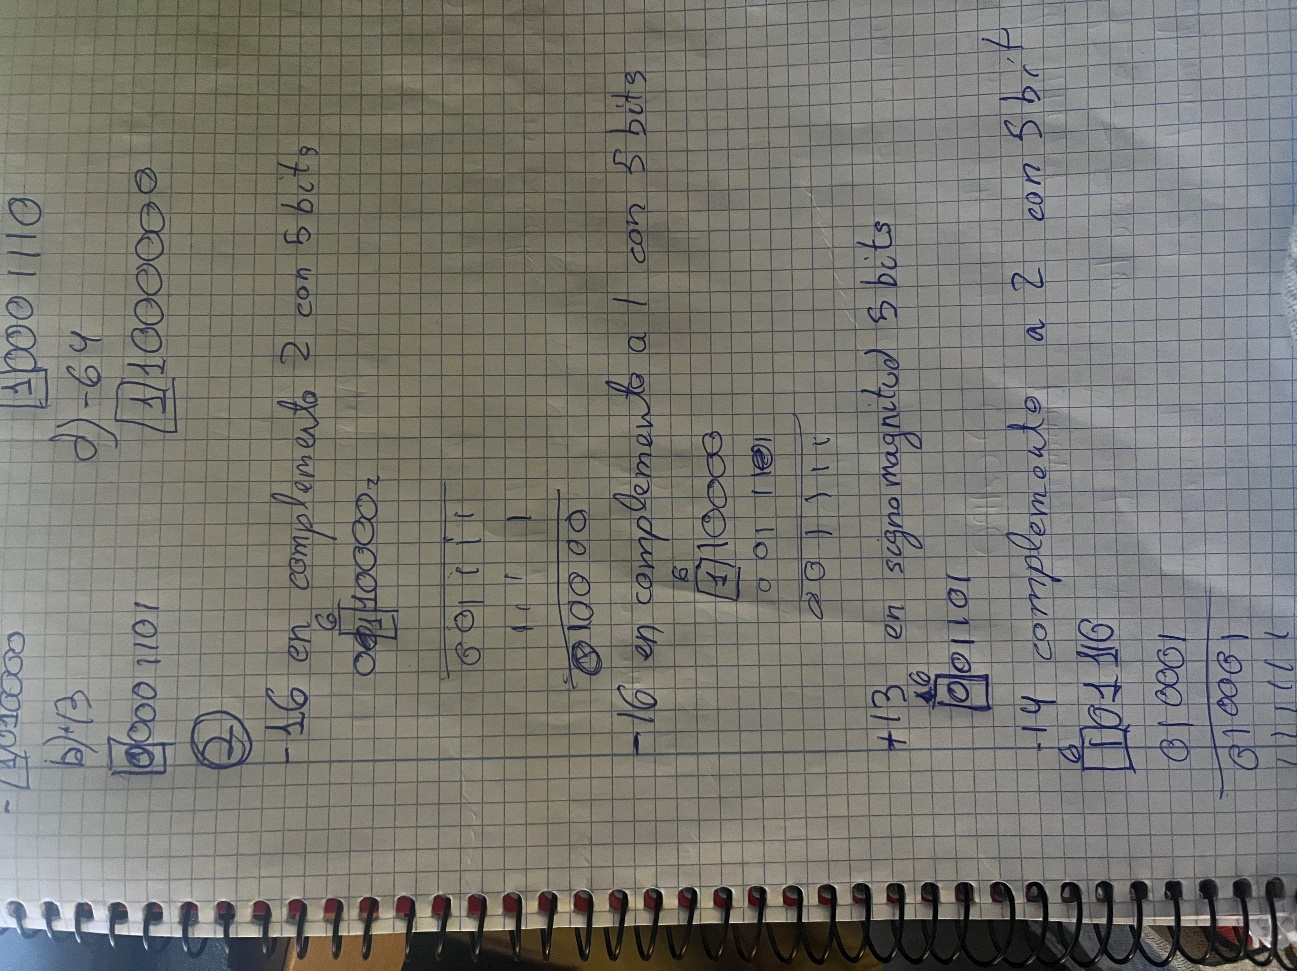 1010000
1000 1110
b)+13
d)-64
00001101
11000000
2
-16 en complemento 2 con 5 bits
6
110000₂
001111
1111
010000
-16 en complemento a 1 con 5 bits
6
110000
001111
+13 en signo magnitud 5 bits
16
001101
-14 complemento a 2 con 5 bit
6
101110
010001
010001
11111